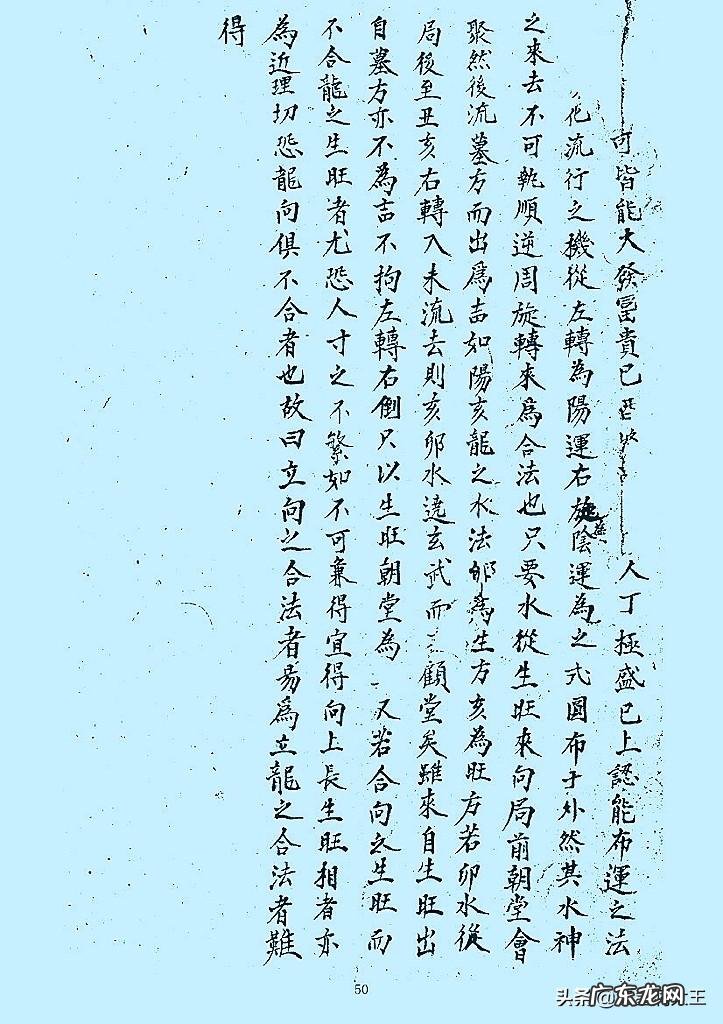 可皆能大發冨貴已 人丁極盛已上認能布運之法
化流行之機從左轉為陽運右旋陰運為之式圓布于外然其水神
之來去不可執順逆周旋轉來爲合法也只要水從生旺來向局前朝堂會
聚然後流墓方而出爲吉如陽亥龍之水法卯爲生方亥為旺方若卯水從
局後至丑亥右轉入未流去則亥卯水遶玄武而 顧堂矣雖來自生旺出
自墓方亦不為吉不拘左轉右倒只以生旺朝堂為 又若合向之生旺而
不合龍之生旺者尤恐人寸之不繁如不可兼得宜得向上長生旺相者亦
為近理切恐龍向俱不合者也故曰立向之合法者易爲立龍之合法者難
得
50
头条@广东龙网王